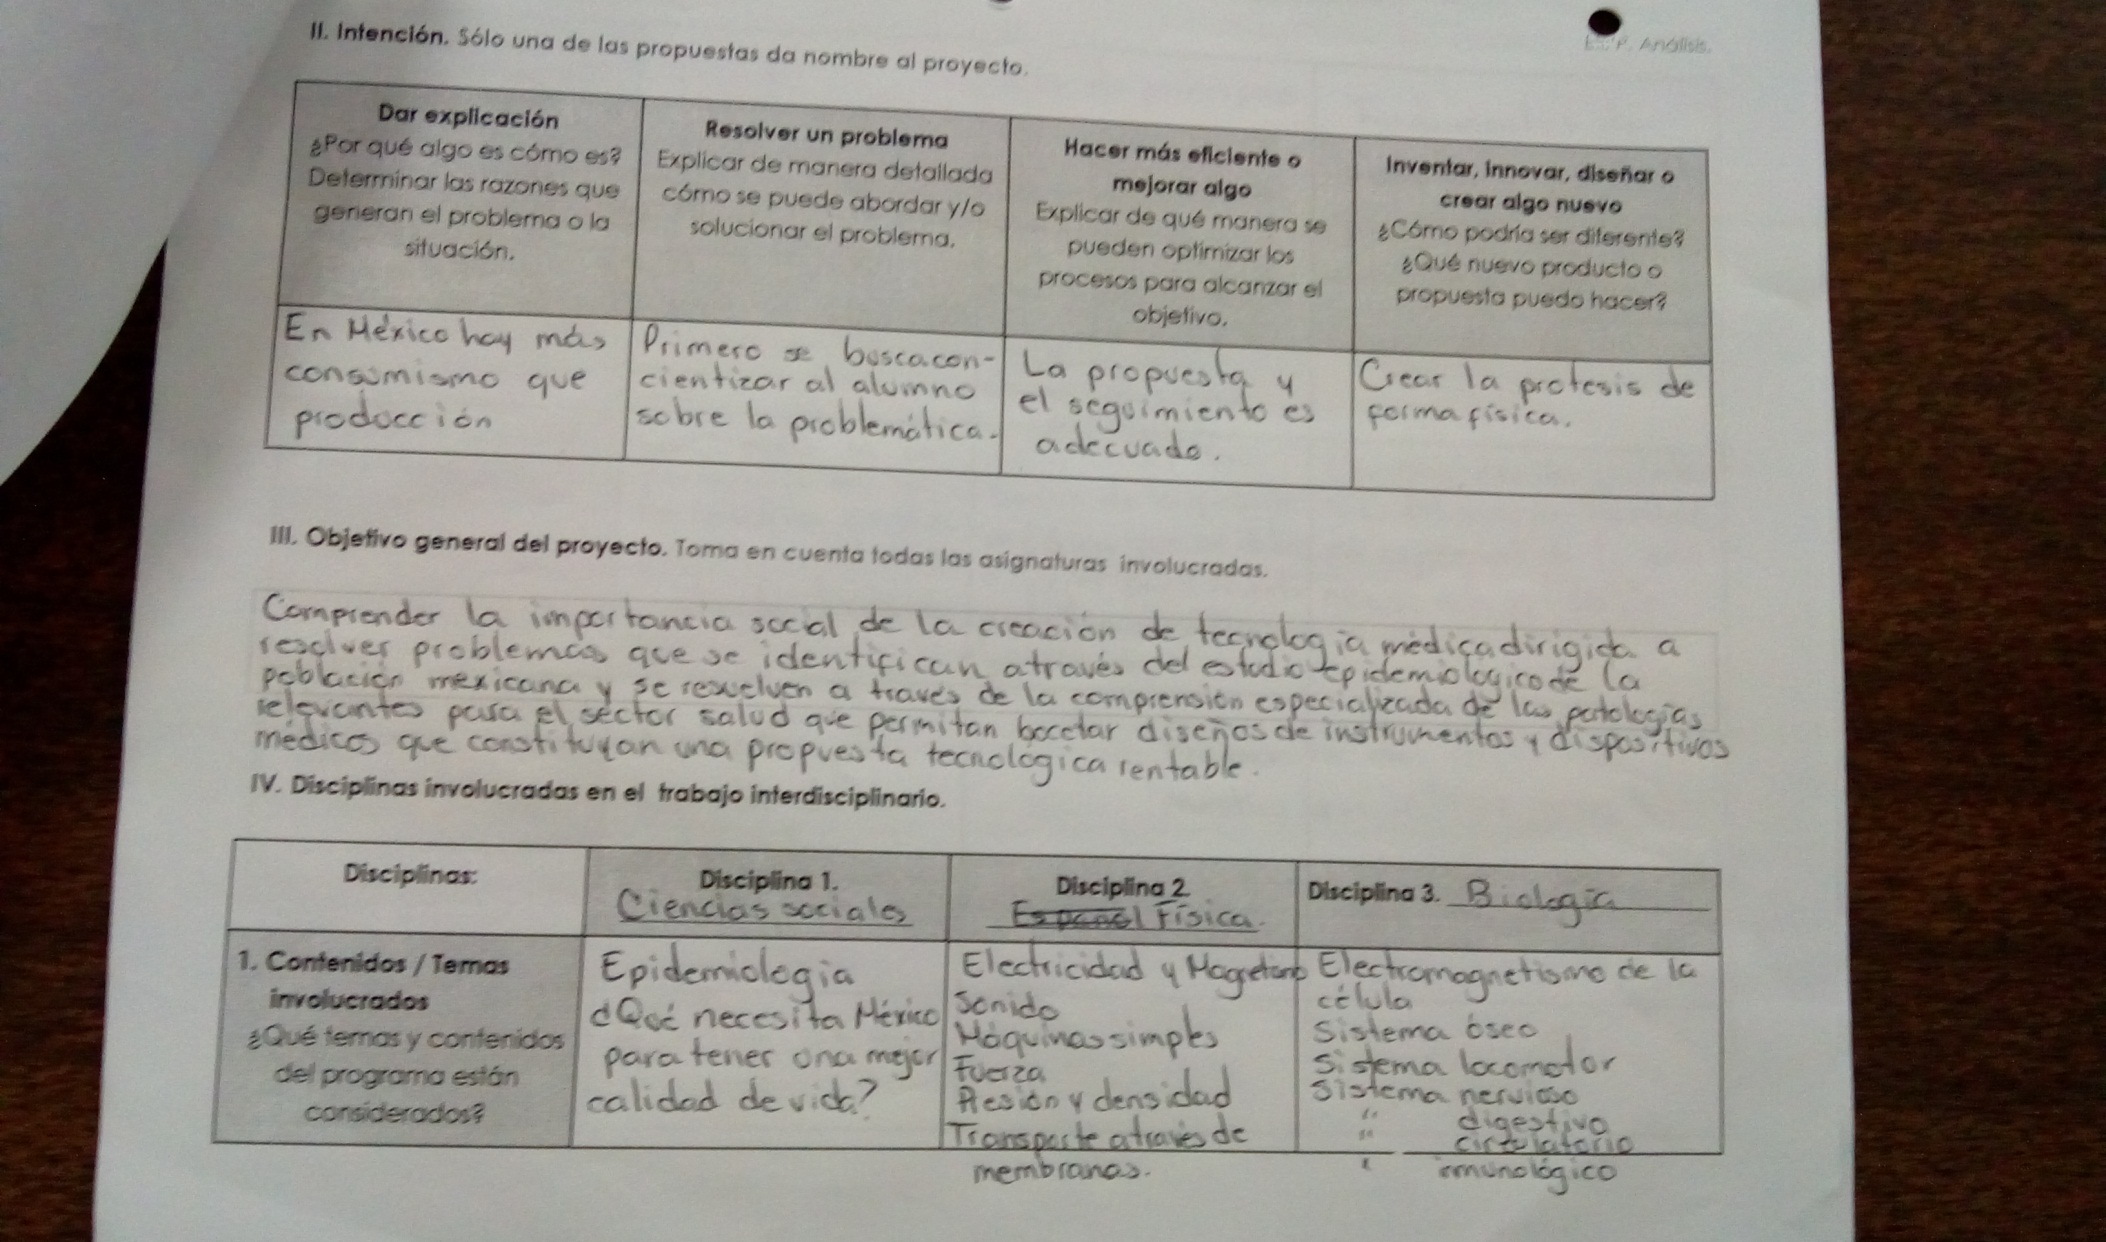 E.I.P. Análisis.
II. Intención. Sólo una de las propuestas da nombre al proyecto.
Dar explicación
¿Por qué algo es cómo es?
Determinar las razones que
generan el problema o la
situación.
Resolver un problema
Explicar de manera detallada
cómo se puede abordar y/o
solucionar el problema.
Hacer más eficiente o
mejorar algo
Explicar de qué manera se
pueden optimizar los
procesos para alcanzar el
objetivo.
Inventar, innovar, diseñar o
crear algo nuevo
¿Cómo podría ser diferente?
¿Qué nuevo producto o
propuesta puedo hacer?
En México hay más
consumismo que
producción
Primero se busca con-
cientizar al alumno
sobre la problemática.
La propuesta y
el seguimiento es
adecuado.
Crear la protesis de
forma física.
III. Objetivo general del proyecto. Toma en cuenta todas las asignaturas involucradas.
Comprender la importancia social de la creación de tecnología médica dirigida a
resolver problemas que se identifican através del estudio epidemiologico de la
población mexicana y se resuelven a través de la comprensión especializada de las patologías
relevantes para el sector salud que permitan bocetar diseños de instrumentos y dispositivos
médicos que constituyan una propuesta tecnológica rentable.
IV. Disciplinas involucradas en el trabajo interdisciplinario.
Disciplinas:
Disciplina 1.
Ciencias sociales
Disciplina 2
Español Física.
Disciplina 3. Biología
1. Contenidos / Temas
involucrados
¿Qué temas y contenidos
del programa están
considerados?
Epidemiología
¿Qué necesita México
para tener una mejor
calidad de vida?
Electricidad y Magnetismo
Sonido
Máquinas simples
Fuerza
Presión y densidad
Transporte através de
membranas.
Electromagnetismo de la
célula
Sistema óseo
Sistema locomotor
Sistema nervioso
" digestivo
" circulatorio
" inmunológico